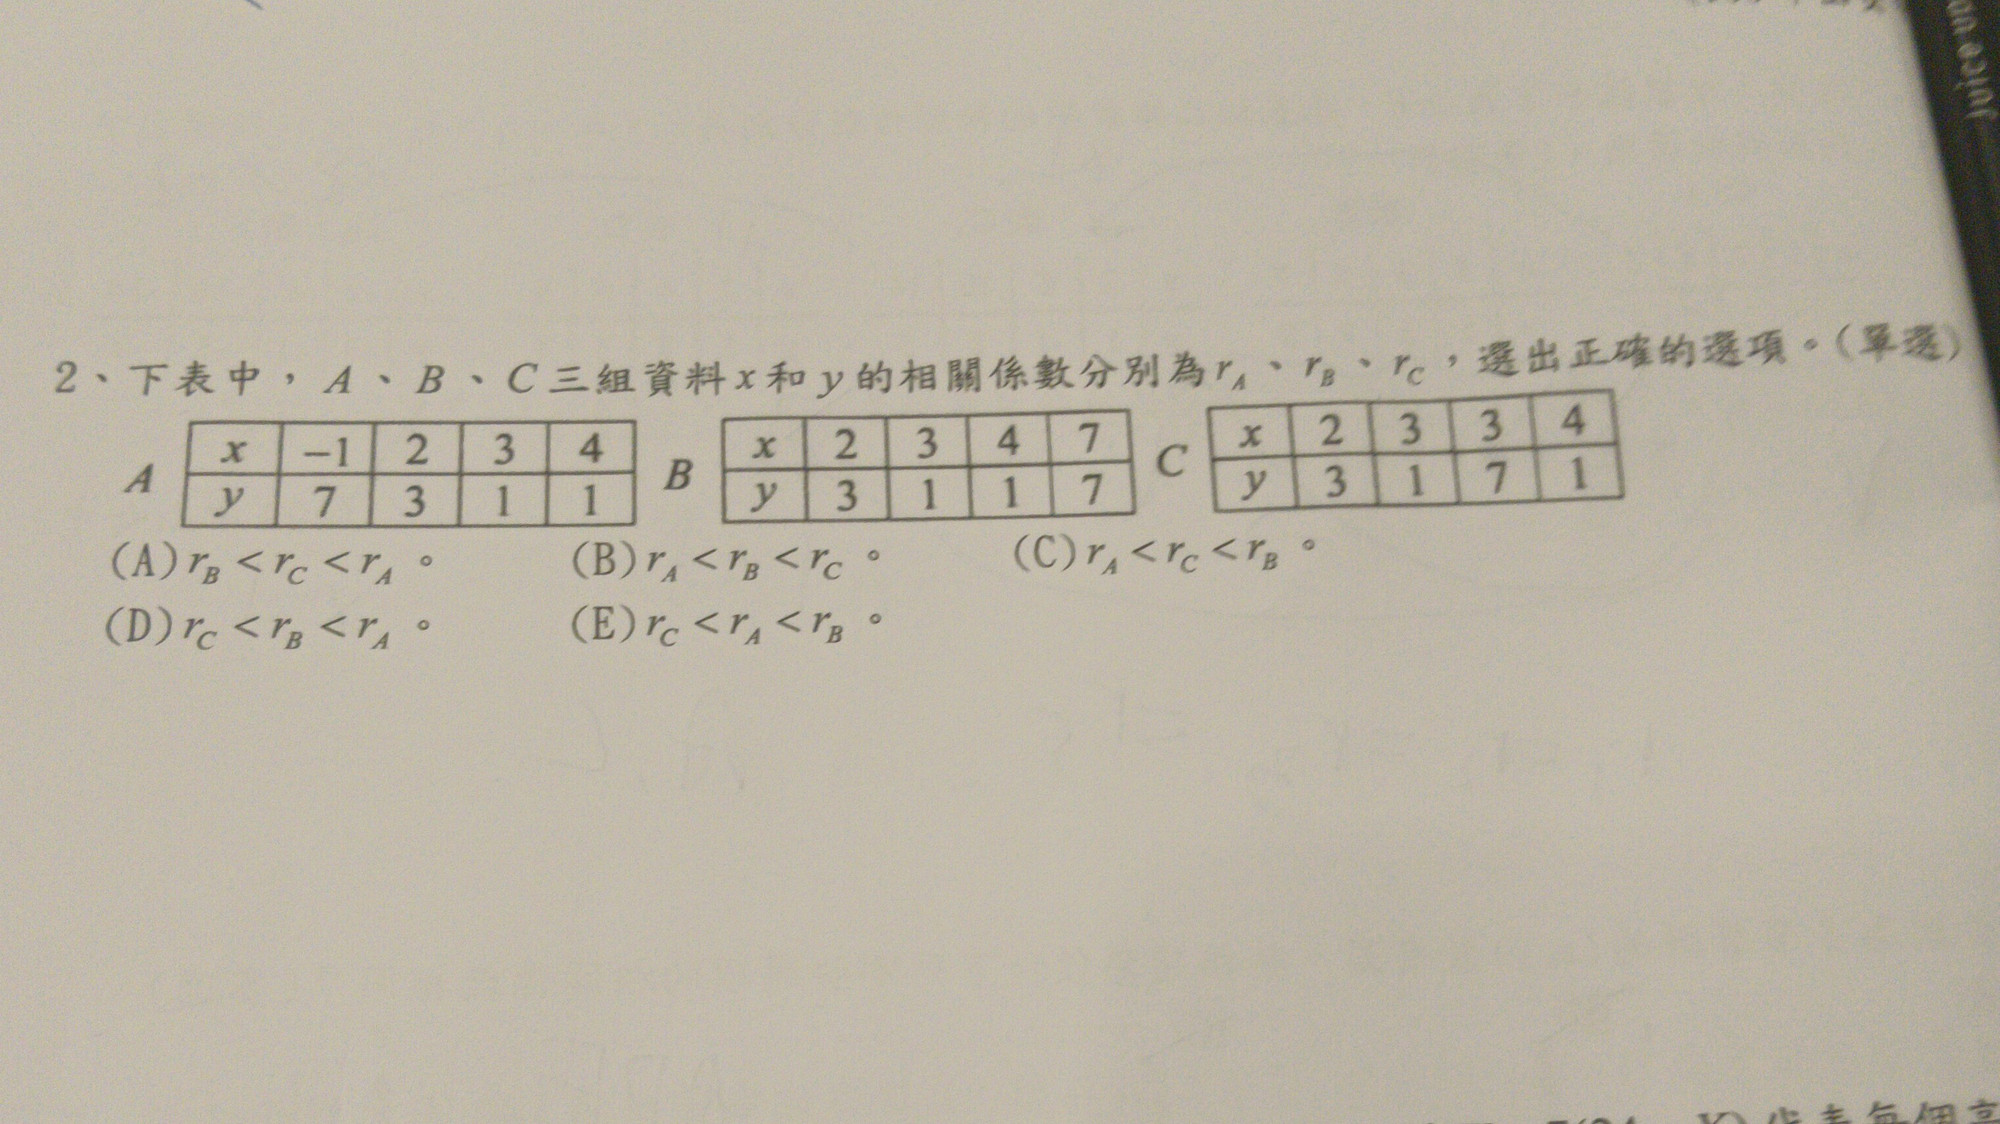 2、下表中，A、B、C三組資料x和y的相關係數分別為r_A、r_B、r_C，選出正確的選項。(單選)
A x -1 2 3 4 B x 2 3 4 7 C x 2 3 3 4
y 7 3 1 1 y 3 1 1 7 y 3 1 7 1
(A)r_B<r_C<r_A。 (B)r_A<r_B<r_C。 (C)r_A<r_C<r_B。
(D)r_C<r_B<r_A。 (E)r_C<r_A<r_B。